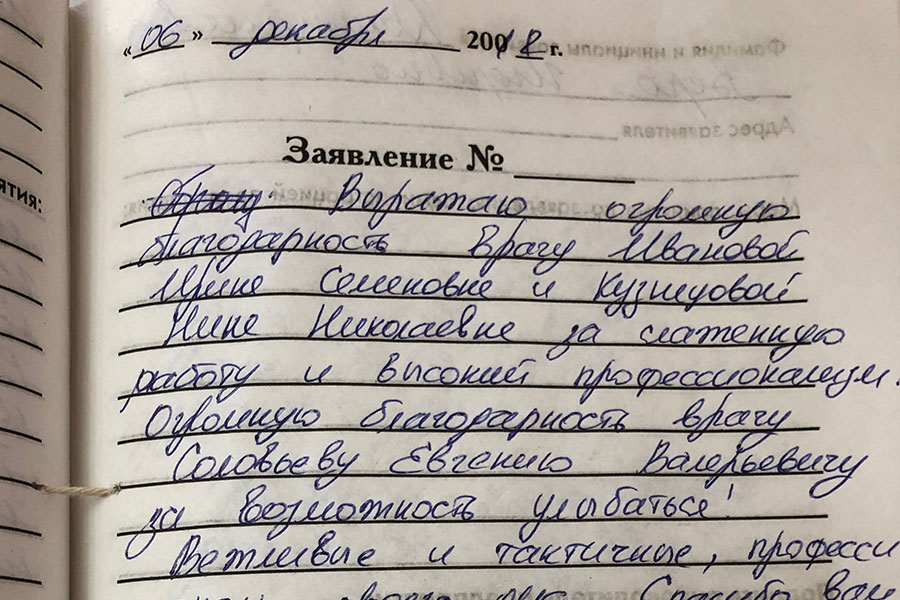 « 06 » декабря 2018 г.
Заявление №
Выражаю огромную
благодарность врачу Ивановой
Ирине Семеновне и Кузнецовой
Нине Николаевне за слаженную
работу и высокий профессионализм.
Огромную благодарность врачу
Соловьеву Евгению Валерьевичу
за возможность улыбаться!
Вежливые и тактичные, професси
Спасибо вам
ятия:
Фамилия и инициалы
Адрес заявителя